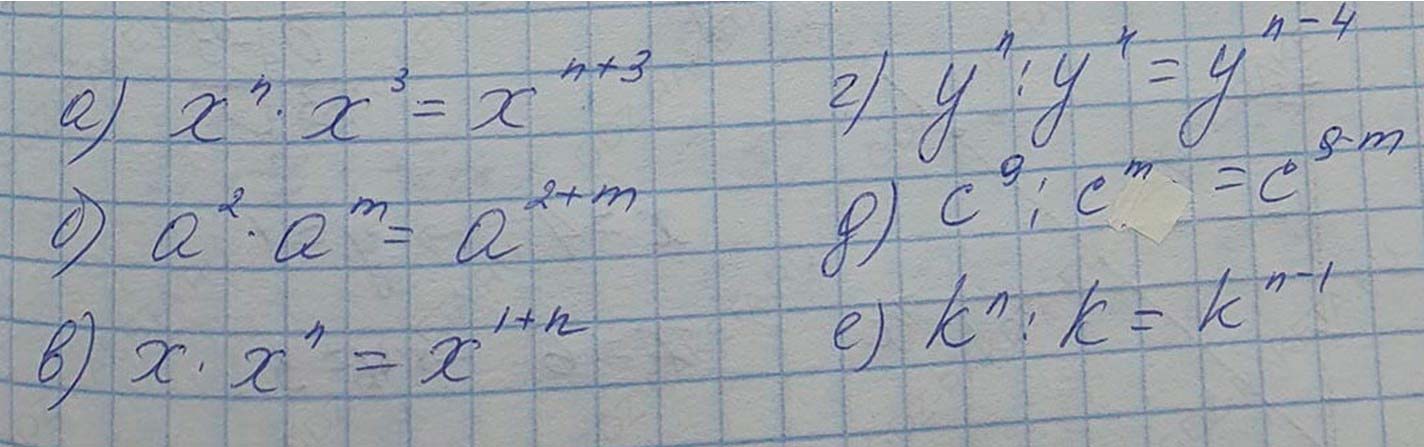 а) xⁿ · x³ = xⁿ⁺³
б) a² · aᵐ = a²⁺ᵐ
в) x · xⁿ = x¹⁺ⁿ
г) yⁿ : y⁴ = yⁿ⁻⁴
д) c⁹ : cᵐ = c⁹⁻ᵐ
е) kⁿ : k = kⁿ⁻¹